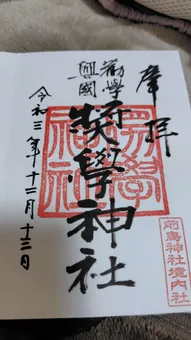 奉拝
勧學
興國
奨學神社
奨學神社
令和三年十二月十三日
前鳥神社境内社